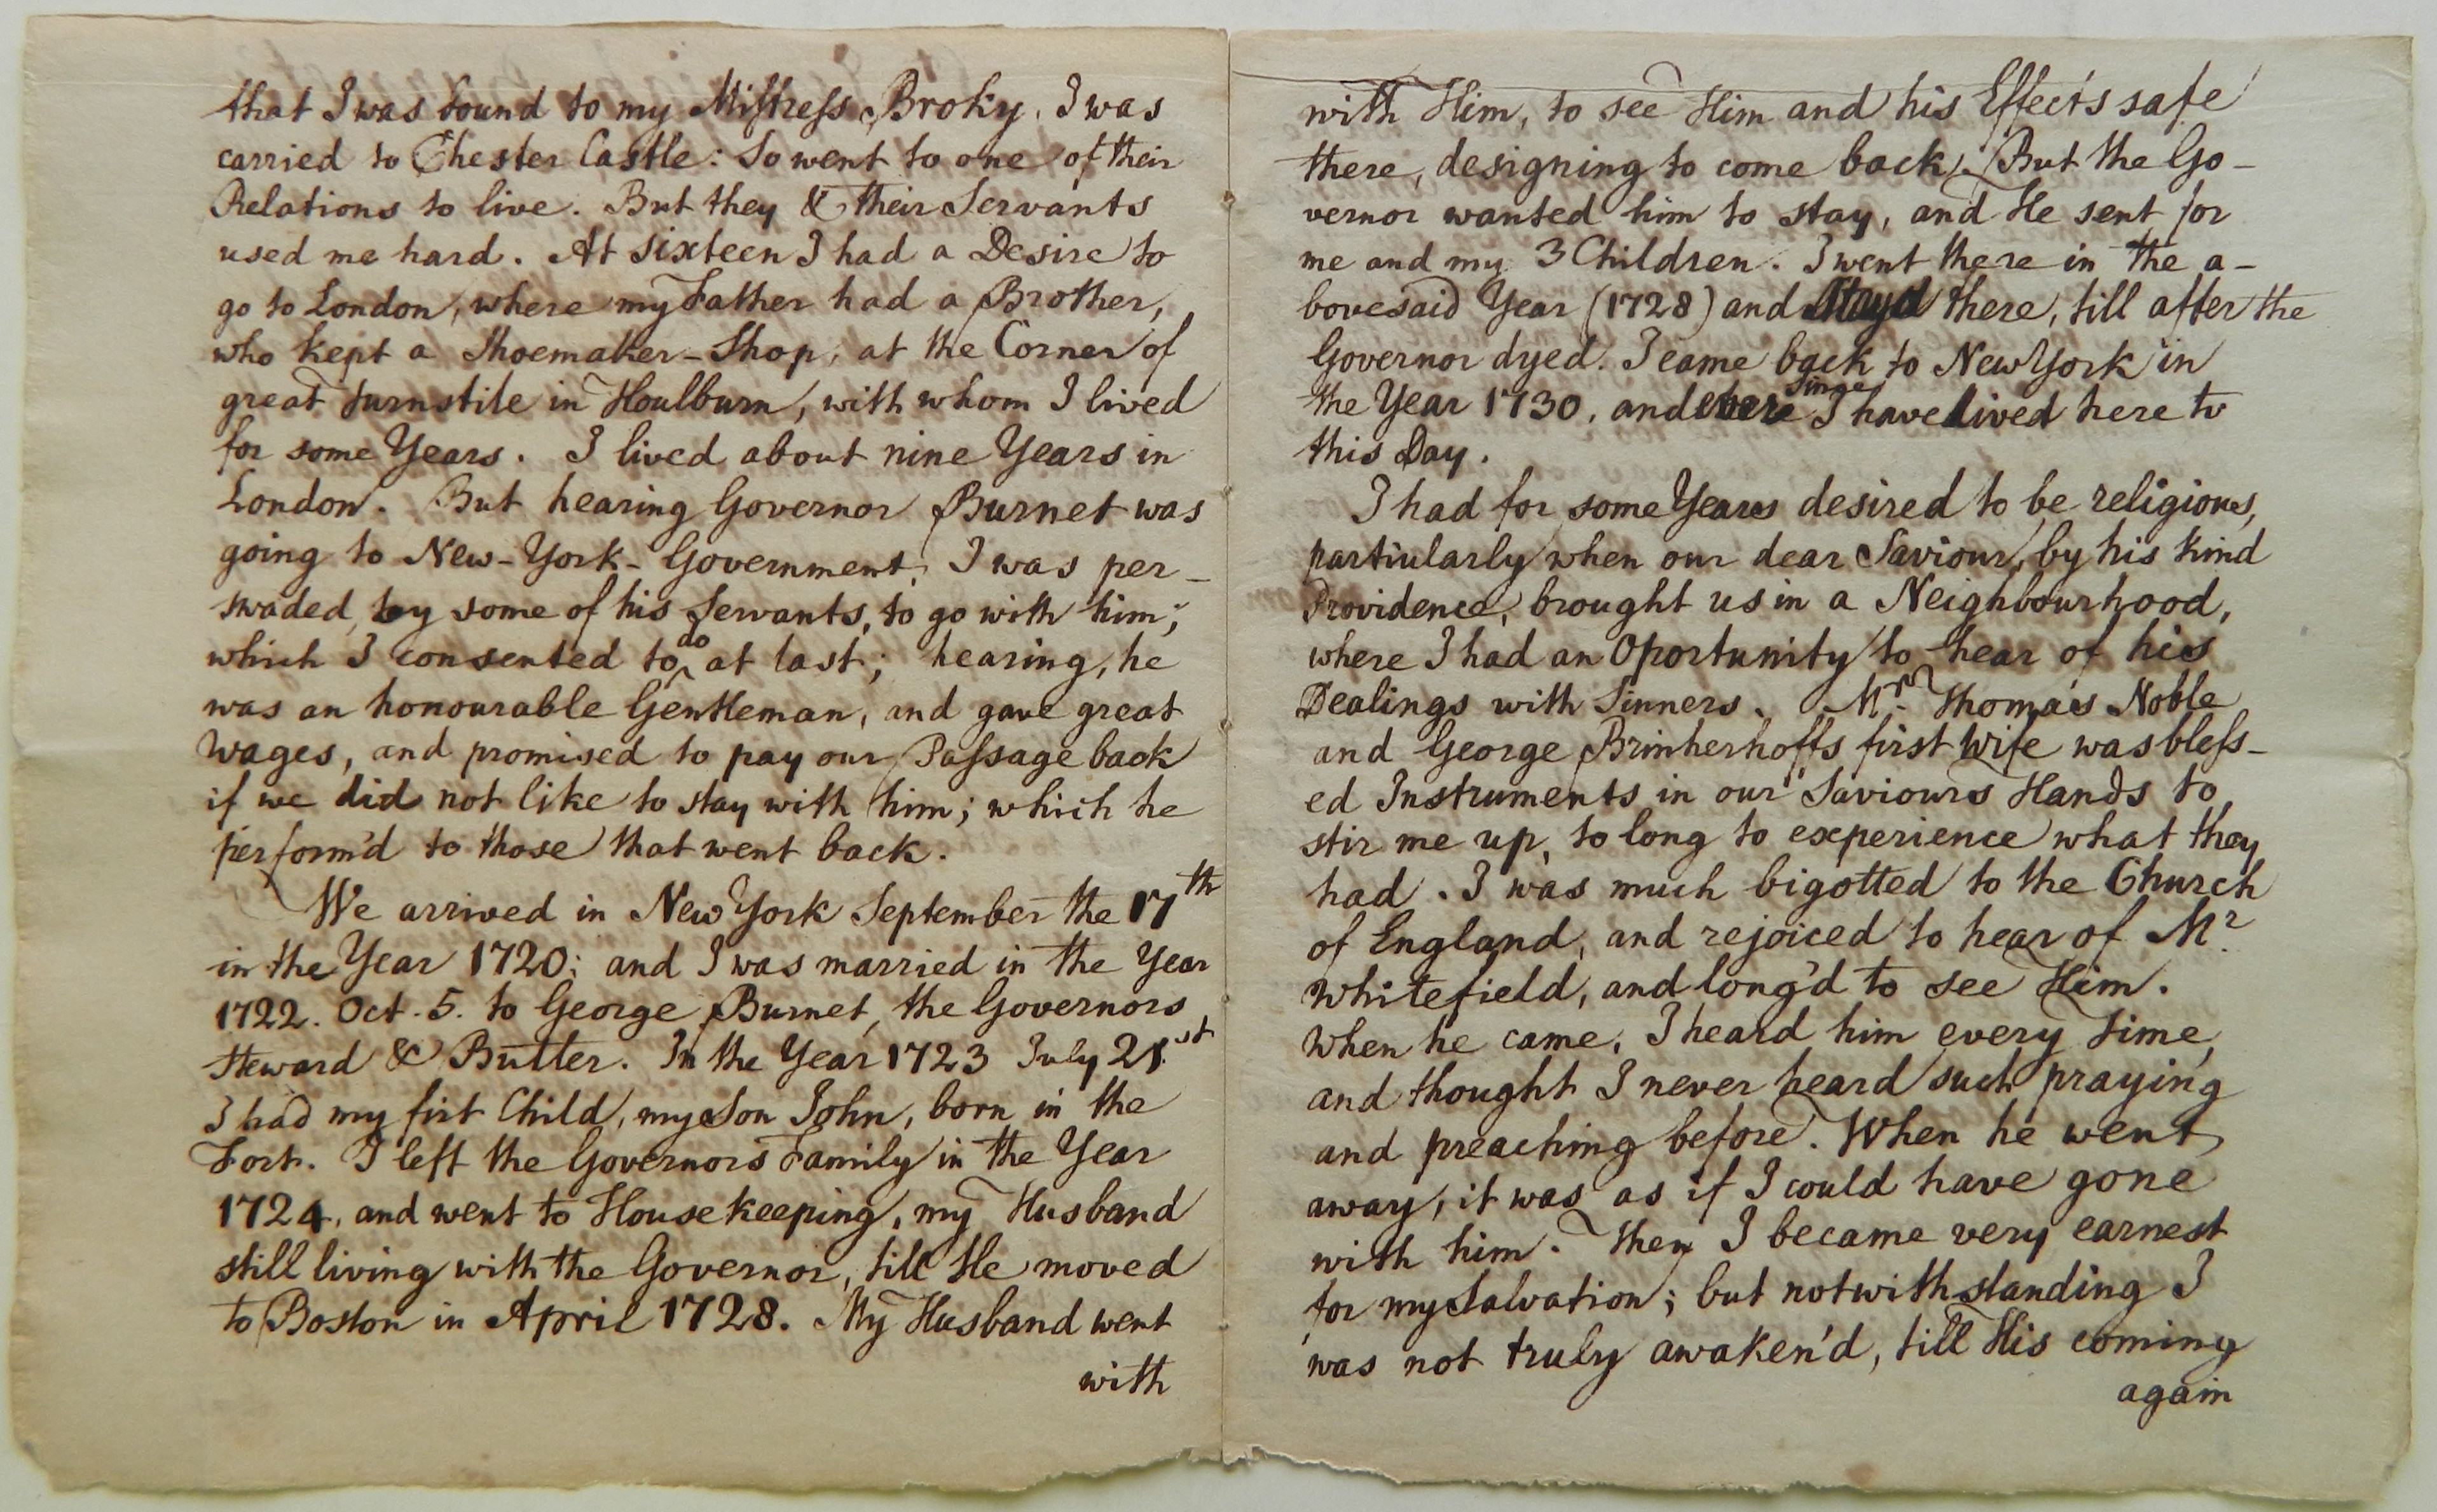 that I was bound to my Mistress Broky. I was
carried to Chester Castle: So went to one of their
Relations to live. But they & their Servants
used me hard. At sixteen I had a Desire to
go to London, where my Father had a Brother,
who kept a Shoemaker-Shop, at the Corner of
great turnstile in Houlburn, with whom I lived
for some Years. I lived about nine Years in
London. But hearing Governor Burnet was
going to New-York-Government, I was per-
swaded, by some of his Servants, to go with him;
which I consented to do at last; hearing, he
was an honourable Gentleman, and gave great
Wages, and promised to pay our Passage back
if we did not like to stay with him; which he
perform'd to those that went back.
We arrived in New York September the 17th
in the Year 1720; and I was married in the Year
1722. Oct. 5. to George Burnet, the Governors
Steward & Buttler. In the Year 1723 July 21.st
I had my first Child, my Son John, born in the
Fort. I left the Governors Family in the Year
1724, and went to Housekeeping, my Husband
still living with the Governor, till He moved
to Boston in April 1728. My Husband went
with
with Him, to see Him and his Effects safe
there, designing to come back. But the Go-
vernor wanted him to stay, and He sent for
me and my 3 Children. I went there in the a-
bovesaid Year (1728) and stayd there, till after the
Governor dyed. I came back to New York in
the Year 1730, and since I have lived here to
this Day.
I had for some Years desired to be religious,
partiularly when our dear Saviour, by his kind
Providence, brought us in a Neighbourhood,
where I had an Oportunity to hear of his
Dealings with Sinners. Mr. Thomas Noble
and George Brinkerhoffs first Wife was bless-
ed Instruments in our Saviours Hands to
stir me up, to long to experience what they
had. I was much bigotted to the Church
of England, and rejoiced to hear of Mr.
Whitefield, and long'd to see Him.
When he came, I heard him every time,
and thought I never heard such praying
and preaching before. When he went
away, it was as if I could have gone
with him. Then I became very earnest
for my Salvation; but notwithstanding I
was not truly awaken'd, till His coming
again